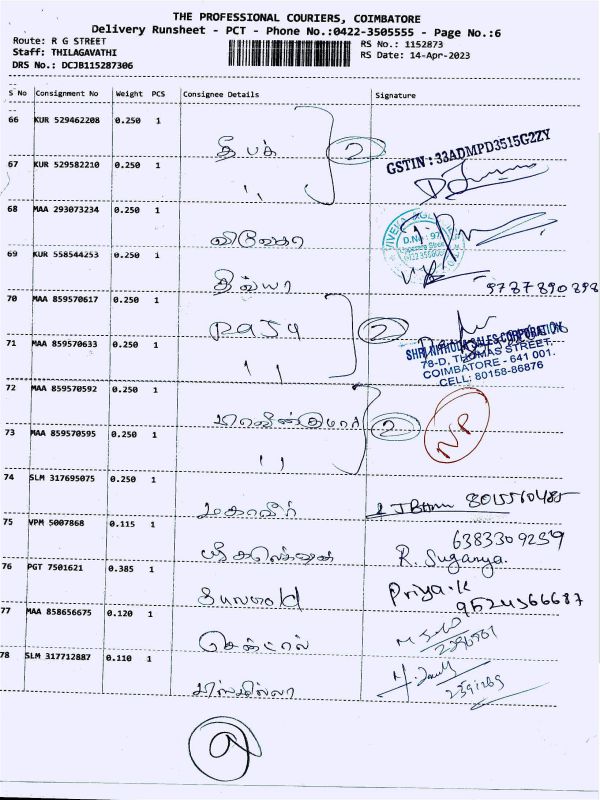 THE PROFESSIONAL COURIERS, COIMBATORE
Delivery Runsheet - PCT - Phone No.:0422-3505555 - Page No.:6
Route: R G STREET
RS No.: 1152873
Staff: THILAGAVATHI
RS Date: 14-Apr-2023
DRS No.: DCJB115287306
S No Consignment No Weight PCS Consignee Details Signature
66 KUR 529462208 0.250 1
தீபக் 2
GSTIN : 33ADMPD3515G2ZY
67 KUR 529582210 0.250 1
,,
68 MAA 293073234 0.250 1
69 KUR 558544253 0.250 1
திவ்யா
9787890898
70 MAA 859570617 0.250 1
Raja 2
71 MAA 859570633 0.250 1
,,
SALES CORPORATION
78-D, THOMAS STREET,
COIMBATORE - 641 001.
CELL: 80158-86876
72 MAA 859570592 0.250 1
2 NP
73 MAA 859570595 0.250 1
,,
74 SLM 317695075 0.250 1
மகாவீர்
75 VPM 5007868 0.115 1
6383309239
R. Suganya.
76 PGT 7501621 0.385 1
Priya.K
9524366687
77 MAA 858656675 0.120 1
சென்ட்ரல்
78 SLM 317712887 0.110 1
பிஸ்மில்லா